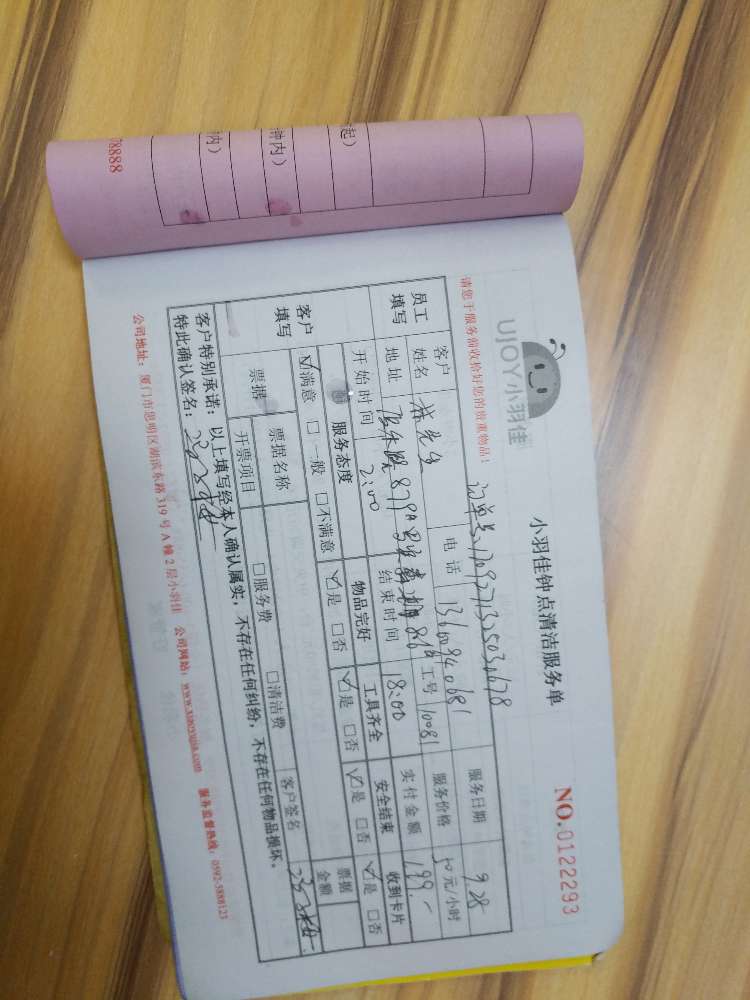 78888
起)
钟内)
内)
UJOY小羽佳
小羽佳钟点清洁服务单
NO.0122293
请您于服务前收拾好您的贵重物品!
员工填写
客户姓名
林先生
电话
13600840681
服务日期
9.28
地址
工号
10081
服务价格
50元/小时
开始时间
2:00
结束时间
18:00
实付金额
199.-
客户填写
服务态度
物品完好
工具齐全
安全结束
收到卡片
☑满意 □一般 □不满意
☑是 □否
☑是 □否
☑是 □否
☑是 □否
票据
票据名称
票据金额
开票项目
□服务费
□清洁费
客户签名
客户特别承诺:以上填写经本人确认属实,不存在任何纠纷,不存在任何物品损坏。
特此确认签名:
公司地址:厦门市思明区湖滨东路319号A幢2层小羽佳 公司网站:www.xiaoyujia.com 服务监督热线:0592-5888123